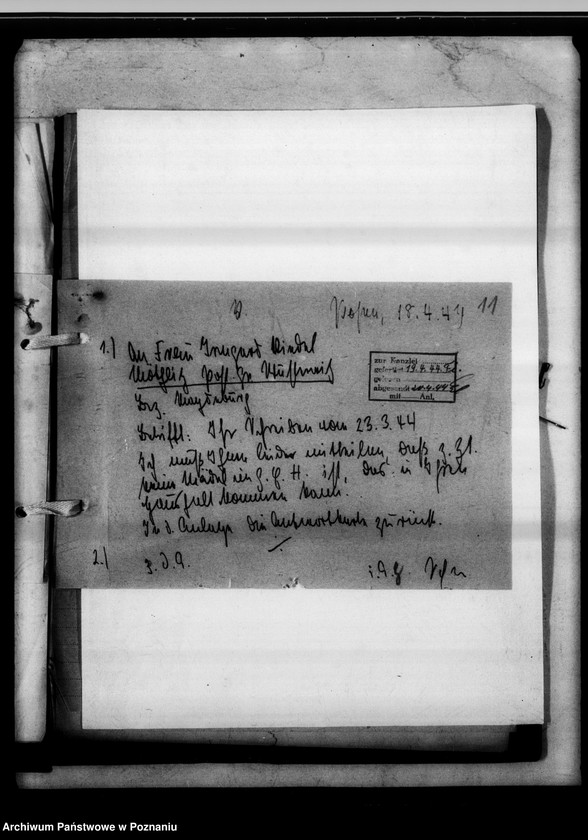 Posen, 18.4.44 11
1.) An Frau Irmgard
Post.
zur Kanzlei
19.4.44
gelesen
abgesandt 20.4.44
mit Anl.
Bez. Magdeburg
Betrifft: Ihr Schreiben vom 23.3.44
Ich muß Ihnen leider mitteilen, daß z.Zt.
kein Mädel im G. H. ist, das in Ihren
Haushalt kommen kann.
In d. Anlage die Antwortkarte zurück.
2.) z.d.A.
Archiwum Państwowe w Poznaniu